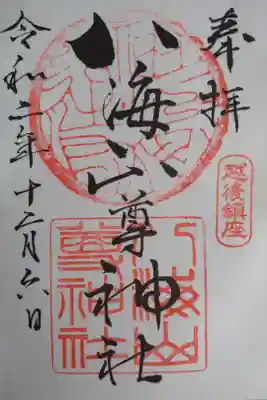 奉拝
越後鎮座
八海山尊神社
八海山尊神社
令和二年十二月六日